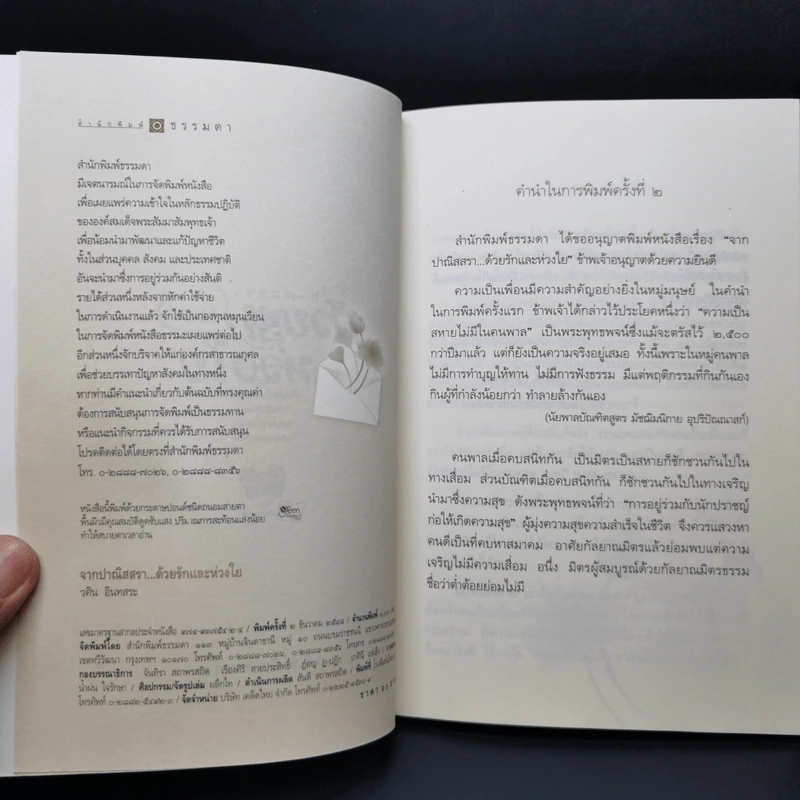 สำนักพิมพ์ ธรรมดา
สำนักพิมพ์ธรรมดา
มีเจตนารมณ์ในการจัดพิมพ์หนังสือ
เพื่อเผยแพร่ความเข้าใจในหลักธรรมปฏิบัติ
ขององค์สมเด็จพระสัมมาสัมพุทธเจ้า
เพื่อน้อมนำมาพัฒนาและแก้ปัญหาชีวิต
ทั้งในส่วนบุคคล สังคม และประเทศชาติ
อันจะนำมาซึ่งการอยู่ร่วมกันอย่างสันติ
รายได้ส่วนหนึ่งหลังจากหักค่าใช้จ่าย
ในการดำเนินงานแล้ว จักใช้เป็นกองทุนหมุนเวียน
ในการจัดพิมพ์หนังสือธรรมะเผยแพร่ต่อไป
อีกส่วนหนึ่งจักบริจาคให้แก่องค์กรสาธารณกุศล
เพื่อช่วยบรรเทาปัญหาสังคมในทางหนึ่ง
หากท่านมีคำแนะนำเกี่ยวกับต้นฉบับที่ทรงคุณค่า
ต้องการสนับสนุนการจัดพิมพ์เป็นธรรมทาน
หรือแนะนำกิจกรรมที่ควรได้รับการสนับสนุน
โปรดติดต่อได้โดยตรงที่สำนักพิมพ์ธรรมดา
โทร. ๐-๒๘๘๘-๗๐๒๖, ๐-๒๘๘๔-๘๓๕๖
หนังสือนี้พิมพ์ด้วยกระดาษปอนด์ชนิดถนอมสายตา
พื้นผิวมีคุณสมบัติดูดซับแสง ปริมาณการสะท้อนแสงน้อย
ทำให้สบายตาเวลาอ่าน
Green
จากปาณิสสรา...ด้วยรักและห่วงใย
วศิน อินทสระ
เลขมาตรฐานสากลประจำหนังสือ ๙๗๔-๙๓๗๕๔-๒-๔ / พิมพ์ครั้งที่ ๒ ธันวาคม ๒๕๔๘ / จำนวนพิมพ์
จัดพิมพ์โดย สำนักพิมพ์ธรรมดา ๑๑๓ หมู่บ้านจินดาธานี หมู่ ๑๐ ถนนบรมราชชนนี
เขตทวีวัฒนา กรุงเทพฯ ๑๐๑๗๐ โทรศัพท์ ๐-๒๘๘๘-๗๐๒๖, ๐-๒๘๘๔-๘๓๕๖ โทรสาร
กองบรรณาธิการ จันทิรา สถาพรสถิต เรืองศิริ สายประสิทธิ์
น้ำฝน ใจรักษา / ศิลปกรรม/จัดรูปเล่ม ผลึกไท / ดำเนินการผลิต สันติ สถาพรสถิต / พิมพ์ที่
โทรศัพท์ ๐-๒๘๘๒-๕๔๙๒-๓ / จัดจำหน่าย บริษัท เคล็ดไทย จำกัด โทรศัพท์ ๐-๒๒๒๕-๙๕๓๖-๙
ราคา
คำนำในการพิมพ์ครั้งที่ ๒
สำนักพิมพ์ธรรมดา ได้ขออนุญาตพิมพ์หนังสือเรื่อง “จาก
ปาณิสสรา...ด้วยรักและห่วงใย” ข้าพเจ้าอนุญาตด้วยความยินดี
ความเป็นเพื่อนมีความสำคัญอย่างยิ่งในหมู่มนุษย์ ในคำนำ
ในการพิมพ์ครั้งแรก ข้าพเจ้าได้กล่าวไว้ประโยคหนึ่งว่า “ความเป็น
สหายไม่มีในคนพาล” เป็นพระพุทธพจน์ซึ่งแม้จะตรัสไว้ ๒,๕๐๐
กว่าปีมาแล้ว แต่ก็ยังเป็นความจริงอยู่เสมอ ทั้งนี้เพราะในหมู่คนพาล
ไม่มีการทำบุญให้ทาน ไม่มีการฟังธรรม มีแต่พฤติกรรมที่กินกันเอง
กินผู้ที่กำลังน้อยกว่า ทำลายล้างกันเอง
(นัยพาลบัณฑิตสูตร มัชฌิมนิกาย อุปริปัณณาสก์)
คนพาลเมื่อคบสนิทกัน เป็นมิตรเป็นสหายก็ชักชวนกันไปใน
ทางเสื่อม ส่วนบัณฑิตเมื่อคบสนิทกัน ก็ชักชวนกันไปในทางเจริญ
นำมาซึ่งความสุข ดังพระพุทธพจน์ที่ว่า “การอยู่ร่วมกับนักปราชญ์
ก่อให้เกิดความสุข” ผู้มุ่งความสุขความสำเร็จในชีวิต จึงควรแสวงหา
คนดีเป็นที่คบหาสมาคม อาศัยกัลยาณมิตรแล้วย่อมพบแต่ความ
เจริญไม่มีความเสื่อม อนึ่ง มิตรผู้สมบูรณ์ด้วยกัลยาณมิตรธรรม
ชื่อว่าต่ำต้อยย่อมไม่มี